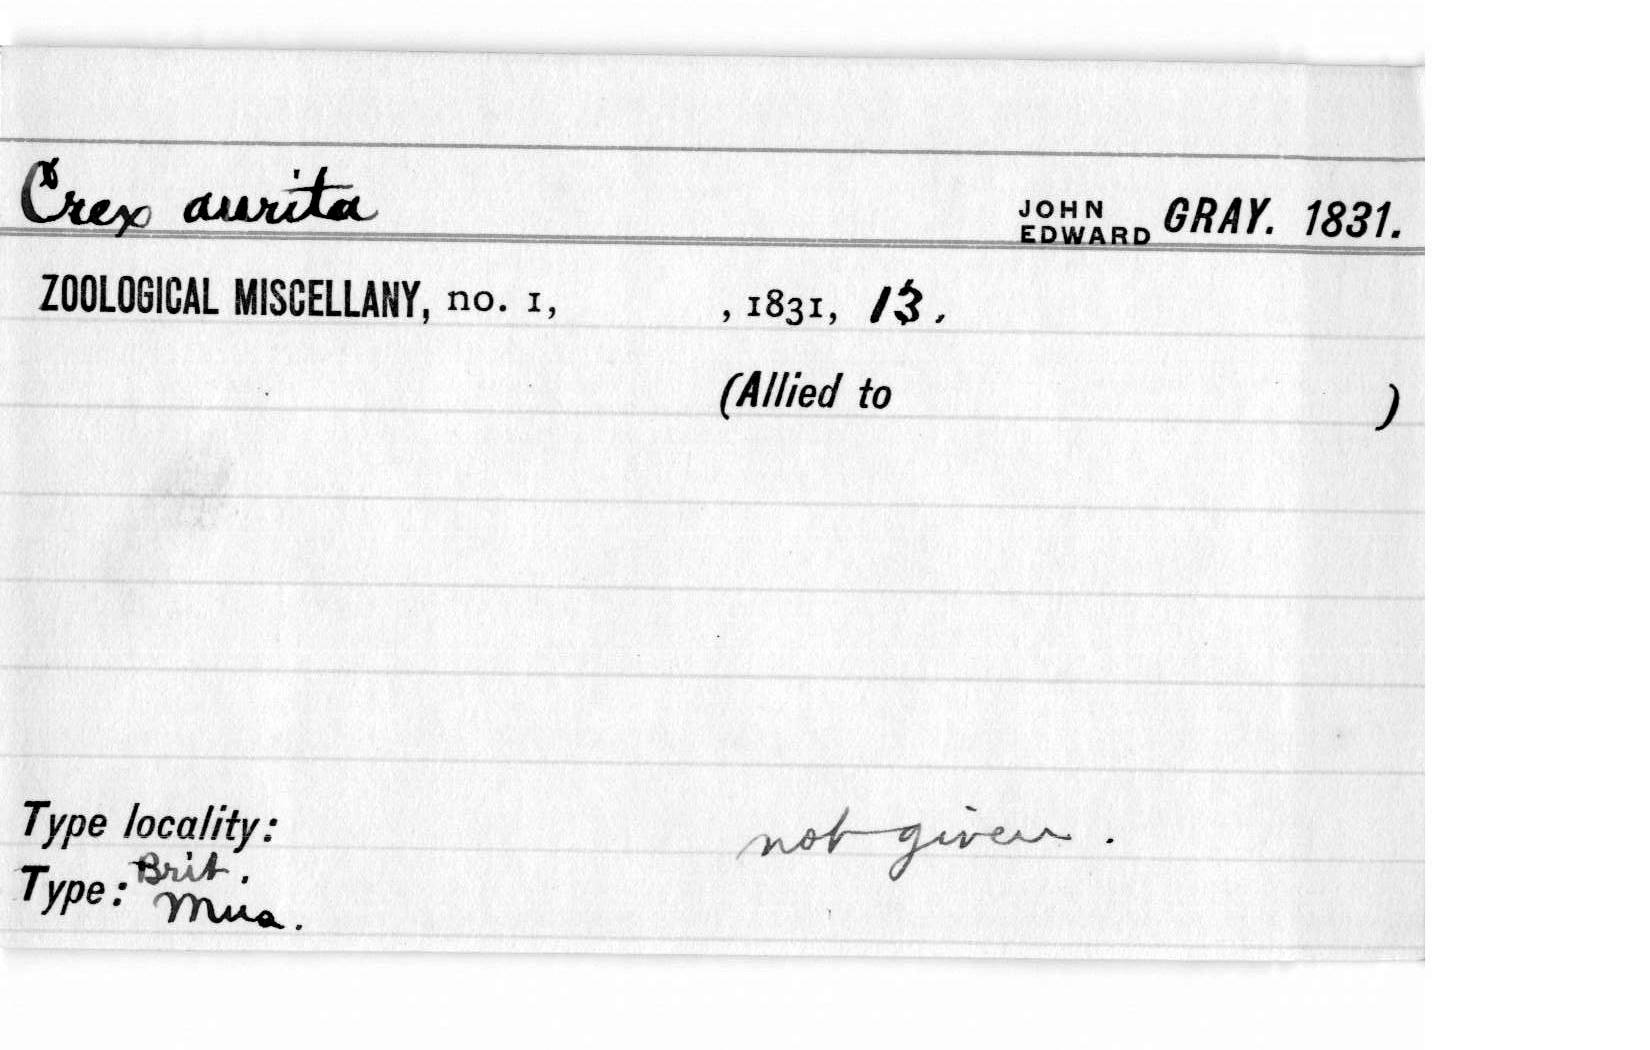 Crex aurita JOHN EDWARD GRAY. 1831.
ZOOLOGICAL MISCELLANY, no. 1, , 1831, 13.
(Allied to )
Type locality: not given.
Type: Brit. Mus.